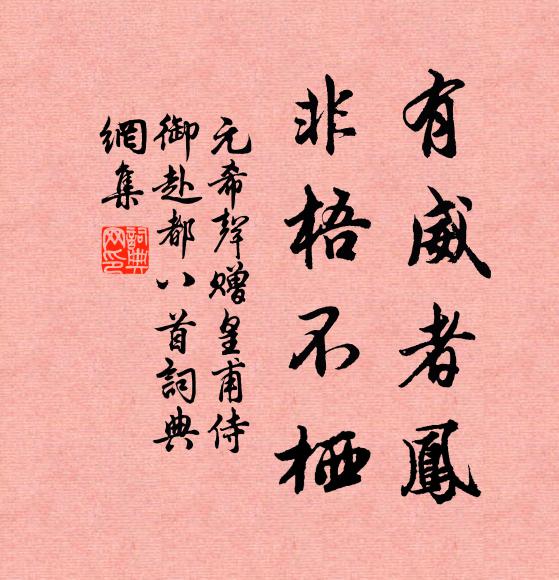 有威者鳳
非梧不栖
元希聲贈皇甫侍
御赴都八首詞典
網集
詞典網印